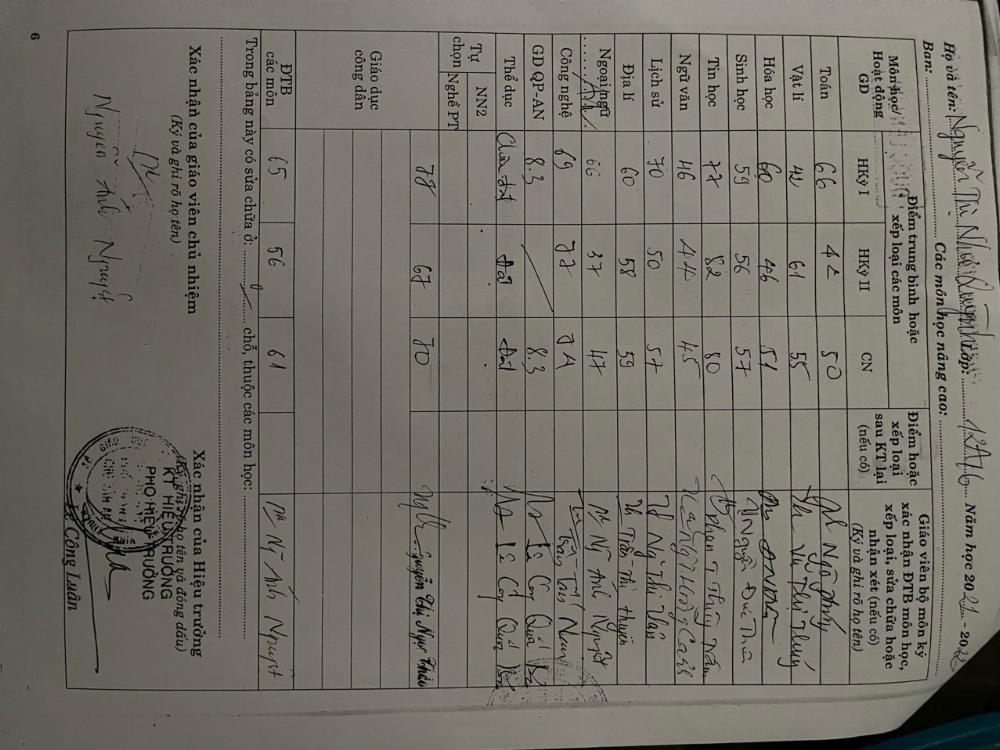 Họ và tên: Nguyễn Thị Như Quỳnh Lớp: 12A6 Năm học 202 - 202
Ban: Các môn học nâng cao:
Môn học/ Hoạt động GD
Điểm trung bình hoặc xếp loại các môn
Điểm hoặc xếp loại sau KT lại (nếu có)
Giáo viên bộ môn ký xác nhận ĐTB môn học, xếp loại, sửa chữa hoặc nhận xét (nếu có) (Ký và ghi rõ họ tên)
HKỳ I HKỳ II CN
Toán 66 42 50
Vật lí 42 61 55 Vũ Thị Thuý
Hóa học 60 46 51
Sinh học 59 56 57 Nguyễn Đức
Tin học 77 82 80 Phan T Thuý
Ngữ văn 46 44 45
Lịch sử 70 50 57 Ng Thị Vân
Địa lí 60 58 59 Trần Thị Huyền
Ngoại ngữ 66 37 47 Ng Ánh Nguyệt
Công nghệ 69 77 74
GD QP-AN 8.3 8.3 Lê Công Quốc
Thể dục Chưa đạt Đạt Đạt Lê Công Quốc
Tự chọn NN2
Nghề PT
Giáo dục công dân 78 67 70 Nguyễn Thị Ngọc Thảo
ĐTB các môn 65 56 61 Ng Ánh Nguyệt
Trong bảng này có sửa chữa ở: 0 chỗ, thuộc các môn học:
Xác nhận của giáo viên chủ nhiệm
(Ký và ghi rõ họ tên)
Nguyễn Ánh Nguyệt
Xác nhận của Hiệu trưởng
(Ký, ghi rõ họ tên và đóng dấu)
KT HIỆU TRƯỞNG
PHÓ HIỆU TRƯỞNG
Lê Công Luân
6